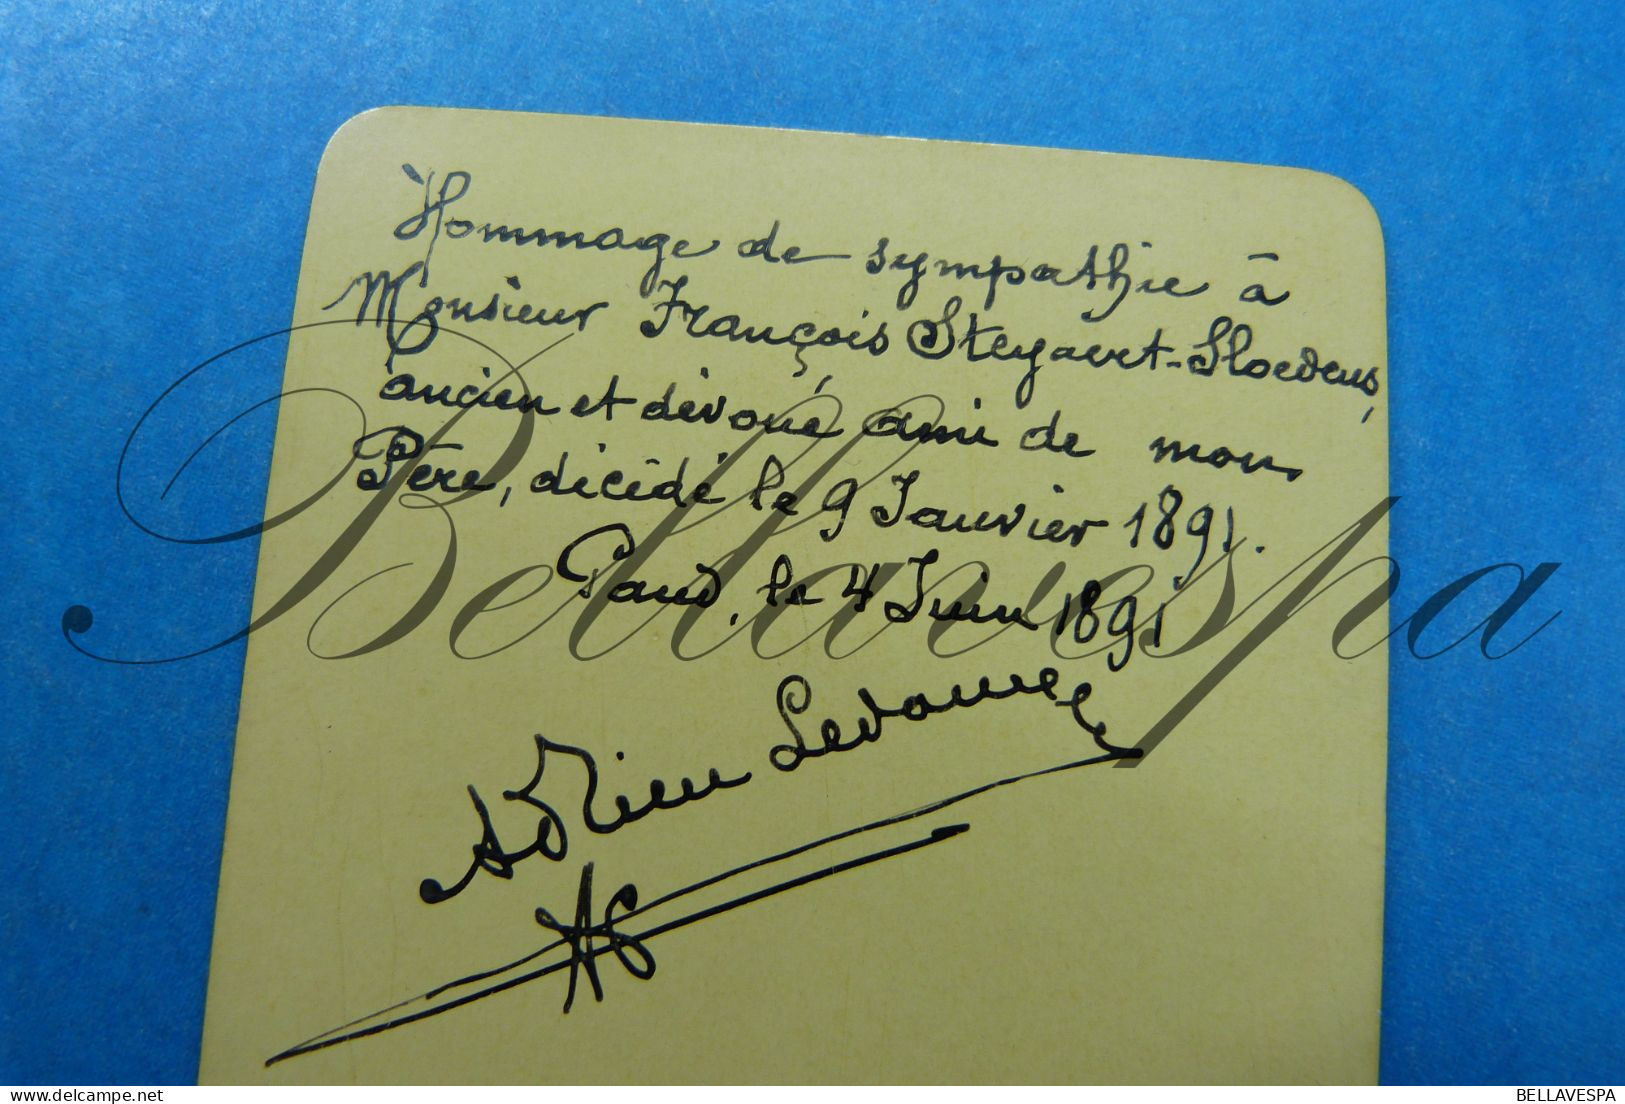 Hommage de sympathie à
Monsieur François Steyaert-Sloedens,
ancien et dévoué ami de mon
Père, décédé le 9 Janvier 1891.
Gand, le 4 Juin 1891
Adrien
Bellavespa
BELLAVESPA